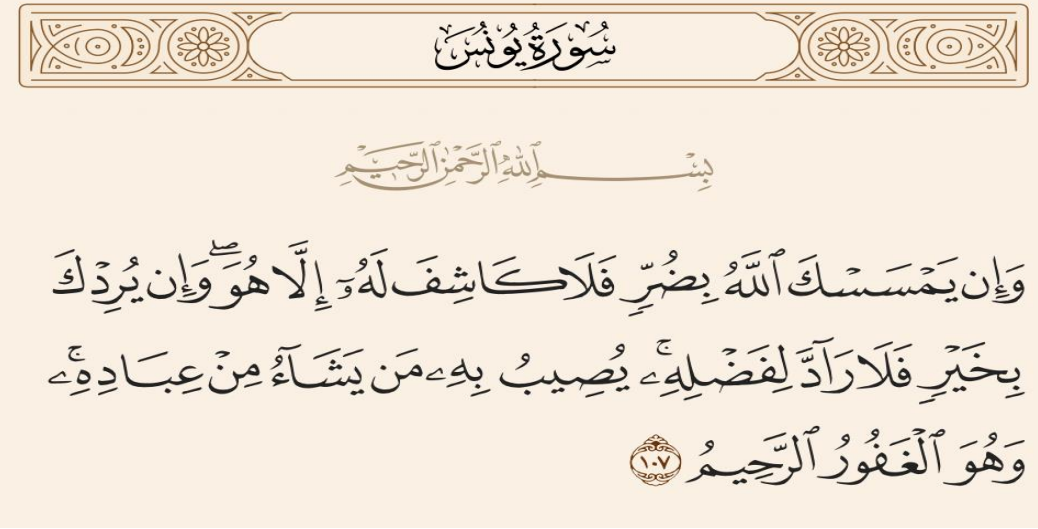 سُورَةُ يُونُسَ
بِسْمِ ٱللَّهِ ٱلرَّحْمَٰنِ ٱلرَّحِيمِ
وَإِن يَمْسَسْكَ ٱللَّهُ بِضُرٍّ فَلَا كَاشِفَ لَهُۥٓ إِلَّا هُوَ ۖ وَإِن يُرِدْكَ
بِخَيْرٍ فَلَا رَآدَّ لِفَضْلِهِۦ ۚ يُصِيبُ بِهِۦ مَن يَشَآءُ مِنْ عِبَادِهِۦ ۚ
وَهُوَ ٱلْغَفُورُ ٱلرَّحِيمُ ١٠٧